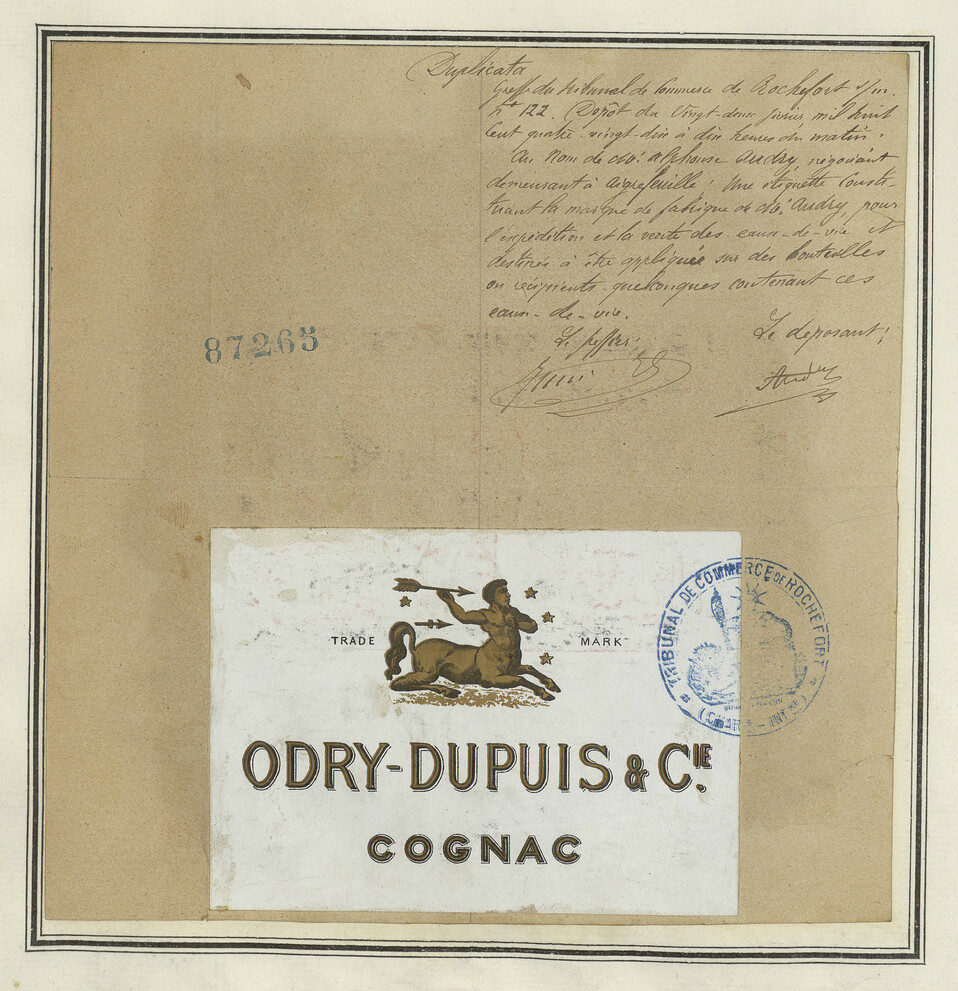 Duplicata
Greffe du tribunal de Commerce de Rochefort s/m.
N° 122. Dépôt du Vingt-deux février mil huit
Cent quatre-vingt-dix à dix heures du matin.
Au Nom de Mr. Alphonse Audry, négociant
demeurant à Aigrefeuille; Une étiquette Consti-
tuant la marque de fabrique de Mr. Audry, pour
l'expédition et la vente des eaux-de-vie et
destinée à être appliquée sur des bouteilles
ou récipients quelconques contenant ces
eaux-de-vie.
Le greffier;
Le déposant;
Audry
87265
TRADE MARK
ODRY-DUPUIS & CIE.
COGNAC
TRIBUNAL DE COMMERCE DE ROCHEFORT
(CHARTE-INFRE)